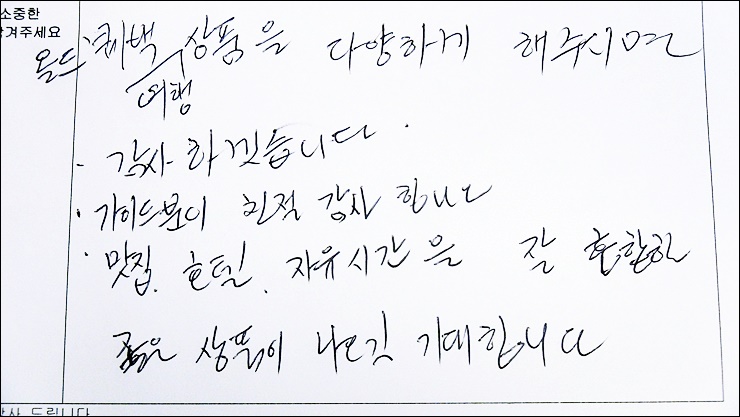 소중한
겨주세요
올드 퀘백 상품을 다양하게 해주시면
여행
· 감사하겠습니다.
· 가이드분이 친절 감사 합니다
· 맛집, 호텔, 자유시간을 잘 혼합한
좋은 상품이 나오길 기대합니다
사 드립니다